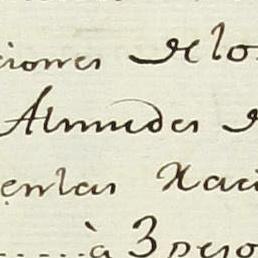 ciones de los
Almudes d
en las Haci
......à 3 peso